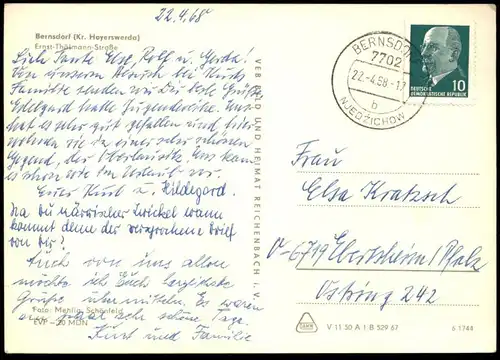 22.4.68
Bernsdorf (Kr. Hoyerswerda)
Ernst-Thälmann-Straße
Liebe Tante Else, Rolf u. Gerda!
Von unserem Besuch bei Kurts
Familie senden wir Dir liebe Grüße
Edelgard hatte Jugendweihe. Uns
hat es sehr gut gefallen und hier
wohnen sie in einer sehr schönen
Gegend, der Oberlausitz. Uns kam
es schon wie ein Urlaub vor.
Euer Kurt u. Hildegard.
Na Du wann
kommt denn der versprochene Brief
von Dir?
Auch von uns allen
möchte ich Euch herzlichste
Grüße übermitteln. Es waren
schöne Tage.
Kurt und Familie
Foto: Mehlig, Schönfeld
EVP –20 MDN
VEB BILD UND HEIMAT REICHENBACH i. V.
BERNSDORF
7702
22.-4.68-17
b
NJEDZICHOW
DEUTSCHE
DEMOKRATISCHE REPUBLIK
10
Frau
Elsa Kratzsch
D-6719 Ebertsheim/Pfalz
Ostring 242
V 11 50 A 1 B 529 67
6 1744